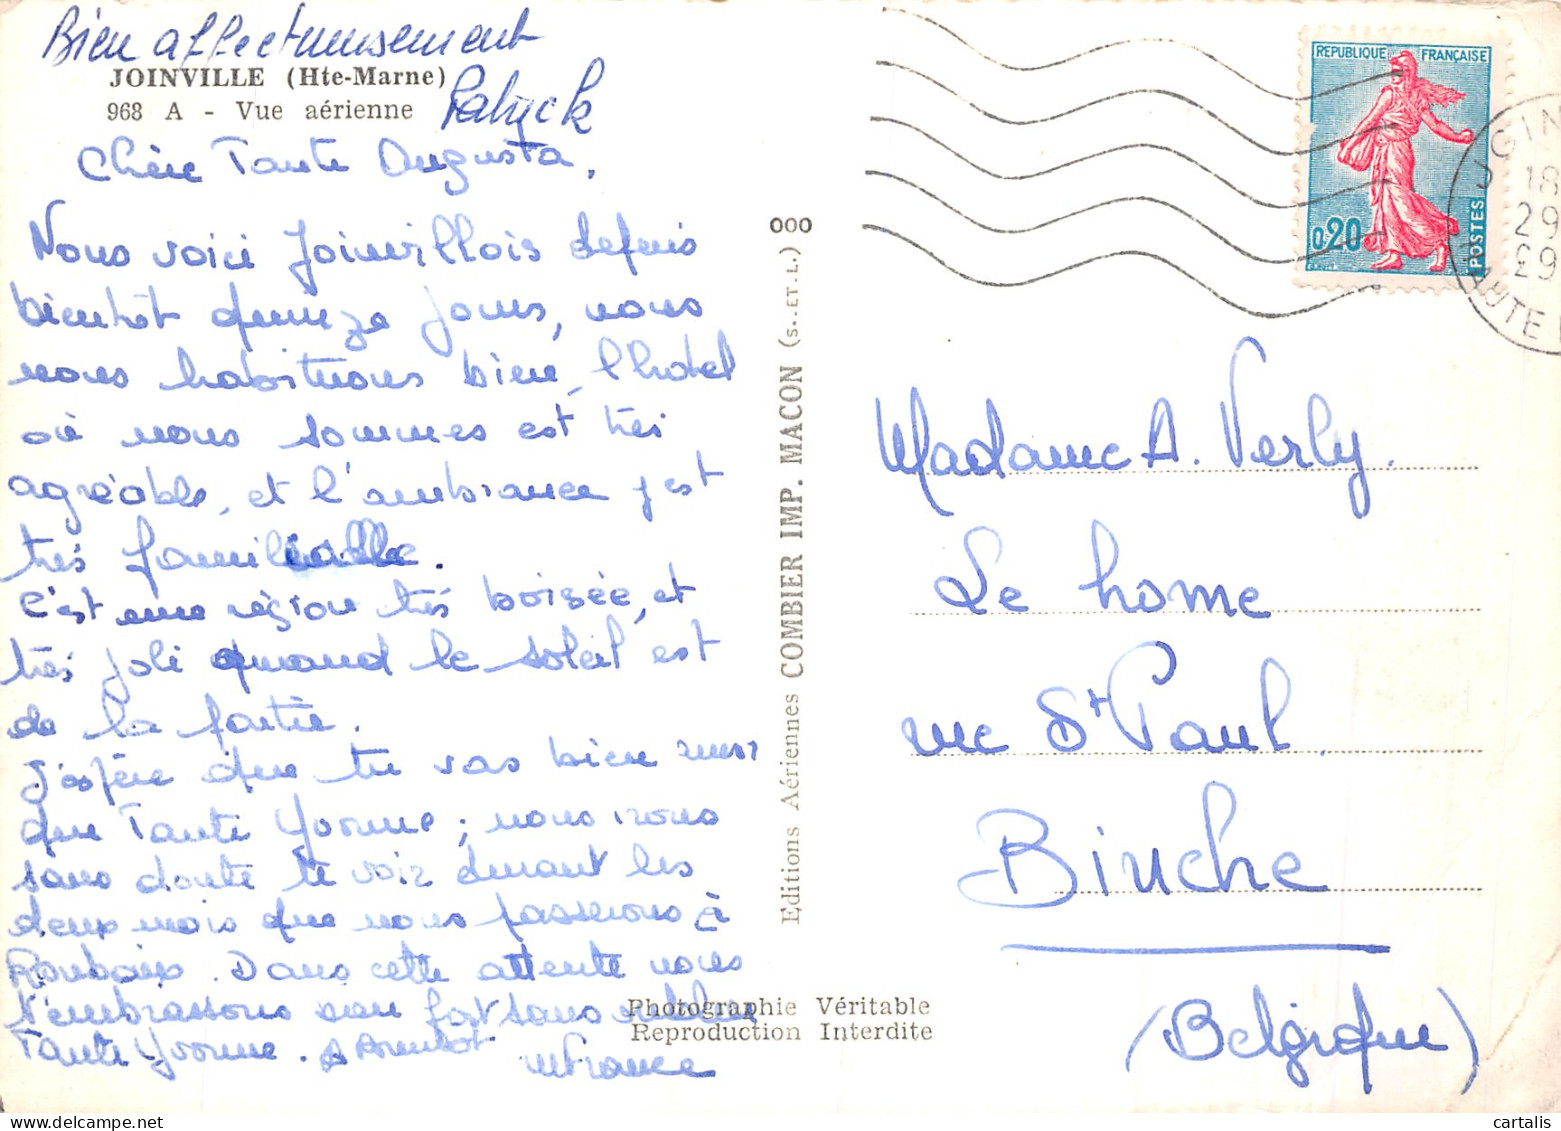 Bien affectueusement
JOINVILLE (Hte-Marne)
Patrick
968 A - Vue aérienne
Chère Tante Augusta,
Nous voici Joinvillois depuis
bientôt quinze jours, nous
nous habituons bien, l'hotel
où nous sommes est très
agréable, et l'ambiance y est
très familiale.
C'est une région très boisée, et
très joli quand le soleil est
de la partie.
J'espère que tu vas bien ainsi
que Tante Yvonne ; nous irons
sans doute te voir durant les
deux mois que nous passerons à
Roubaix. Dans cette attente nous
t'embrassons bien fort sans oublier
Tante Yvonne. A Bientot
France
000
Editions Aériennes COMBIER IMP. MACON (S.-ET-L.)
Photographie Véritable
Reproduction Interdite
REPUBLIQUE FRANÇAISE
0,20
POSTES
JOIN
18
29
HAUTE
Madame A. Verly.
Le home
rue St Paul.
Binche
(Belgique)
cartalis